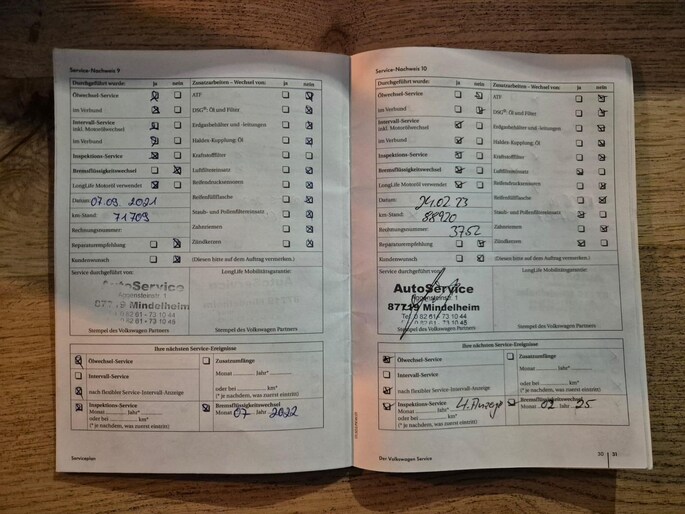 Service-Nachweis 9
Durchgeführt wurde: ja nein Zusatzarbeiten - Wechsel von: ja nein
Ölwechsel-Service ATF
im Verbund DSG®: Öl und Filter
Intervall-Service Erdgasbehälter und -leitungen
inkl. Motorölwechsel
im Verbund Haldex-Kupplung: Öl
Inspektions-Service Kraftstofffilter
Bremsflüssigkeitswechsel Luftfiltereinsatz
LongLife Motoröl verwendet Reifendruckensoren
Datum: 07.09.2021 Reifenfüllflasche
km-Stand: 71709 Staub- und Pollenfiltereinsatz
Rechnungsnummer: Zahnriemen
Reparaturempfehlung Zündkerzen
Kundenwunsch (Diesen bitte auf dem Auftrag vermerken.)
Service durchgeführt von: LongLife Mobilitätsgarantie:
AutoService
87719 Mindelheim
Tel. 0 82 61 - 73 10 44
Stempel des Volkswagen Partners Stempel des Volkswagen Partners
Ihre nächsten Service-Ereignisse
Ölwechsel-Service Zusatzumfänge
Intervall-Service Monat Jahr*
nach flexibler Service-Intervall-Anzeige oder bei km*
(* je nachdem, was zuerst eintritt)
Inspektions-Service Bremsflüssigkeitswechsel
Monat Jahr* Monat 07 Jahr 2022
oder bei km*
(* je nachdem, was zuerst eintritt)
Serviceplan
Service-Nachweis 10
Durchgeführt wurde: ja nein Zusatzarbeiten - Wechsel von: ja nein
Ölwechsel-Service ATF
im Verbund DSG®: Öl und Filter
Intervall-Service Erdgasbehälter und -leitungen
inkl. Motorölwechsel
im Verbund Haldex-Kupplung: Öl
Inspektions-Service Kraftstofffilter
Bremsflüssigkeitswechsel Luftfiltereinsatz
LongLife Motoröl verwendet Reifendruckensoren
Datum: 24.02.23 Reifenfüllflasche
km-Stand: 88920 Staub- und Pollenfiltereinsatz
Rechnungsnummer: 3752 Zahnriemen
Reparaturempfehlung Zündkerzen
Kundenwunsch (Diesen bitte auf dem Auftrag vermerken.)
Service durchgeführt von: LongLife Mobilitätsgarantie:
AutoService
87719 Mindelheim
Tel. 0 82 61 - 73 10 44
0 82 61 - 73 10 45
Stempel des Volkswagen Partners Stempel des Volkswagen Partners
Ihre nächsten Service-Ereignisse
Ölwechsel-Service Zusatzumfänge
Intervall-Service Monat Jahr*
nach flexibler Service-Intervall-Anzeige oder bei km*
(* je nachdem, was zuerst eintritt)
Inspektions-Service Bremsflüssigkeitswechsel
Monat Jahr* Monat 02 Jahr 25
oder bei km*
(* je nachdem, was zuerst eintritt)
Der Volkswagen Service 30 31